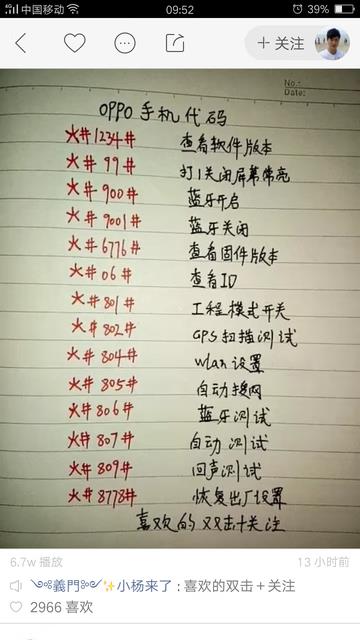 中国移动 09:52 39%
+ 关注
No.:
OPPO 手机代码
*#1234# 查看软件版本
*#99# 打/关闭屏幕常亮
*#900# 蓝牙开启
*#9001# 蓝牙关闭
*#6776# 查看固件版本
*#06# 查看ID
*#801# 工程模式开关
*#802# GPS扫描测试
*#804# wlan设置
*#805# 自动搜网
*#806# 蓝牙测试
*#807# 自动测试
*#809# 回声测试
*#8778# 恢复出厂设置
喜欢的双击+关注
6.7w 播放 13 小时前
義門 小杨来了 : 喜欢的双击+关注
2966 喜欢